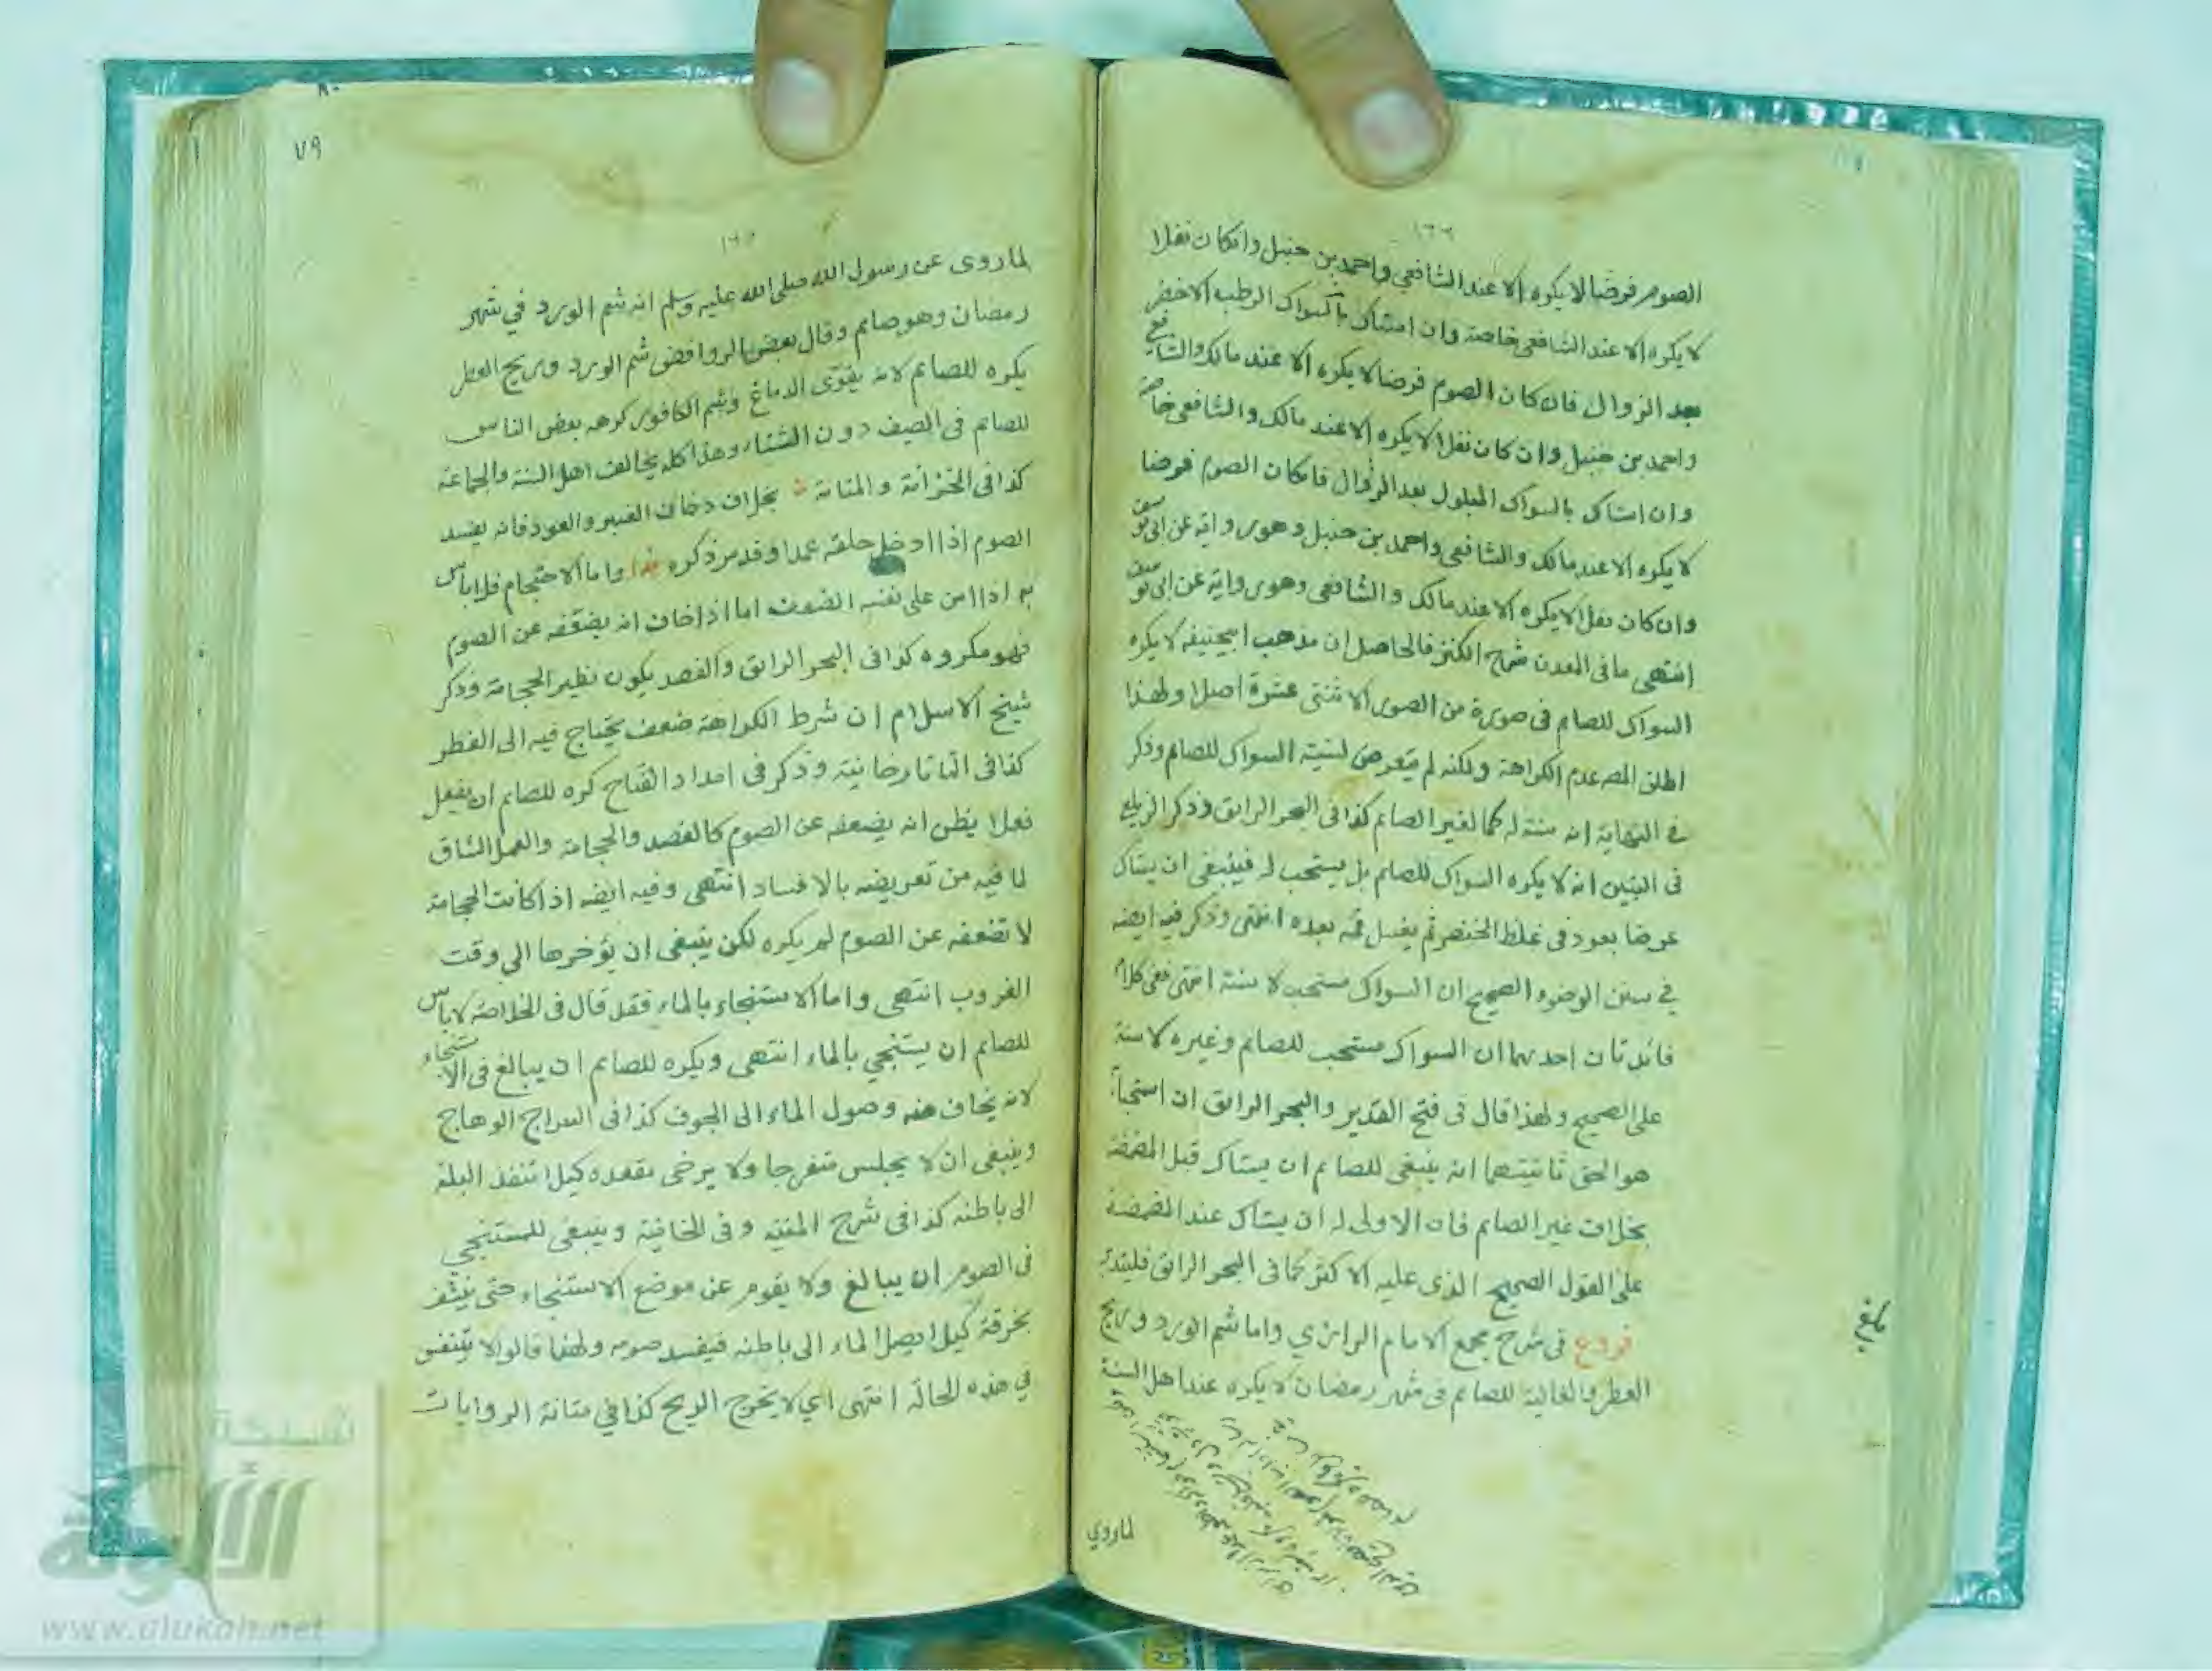 الصوم فرضا لا يكره الا عند الشافعي واحمد بن حنبل وان كان نفلا
لا يكره الا عند الشافعي خاصة وان استاك بالسواك الرطب الاخضر
بعد الزوال فان كان الصوم فرضا لا يكره الا عند مالك والشافعي
واحمد بن حنبل وان كان نفلا لا يكره الا عند مالك والشافعي خاصة
وان استاك بالسواك المبلول بعد الزوال فان كان الصوم فرضا
لا يكره الا عند مالك والشافعي واحمد بن حنبل وهو رواية عن ابي يوسف
وان كان نفلا لا يكره الا عند مالك والشافعي وهو رواية عن ابي يوسف
انتهى ما في المعدن شرح الكنز فالحاصل ان مذهب ابيحنيفه لا يكره
السواك للصايم في صورة من الصور الاثنتى عشرة اصلا ولهذا
اطلق المصه عدم الكراهة ولكنه لم يتعرض لسنية السواك للصايم وذكر
في النهاية انه سنة له كما لغير الصايم كذا في البحر الرايق وذكر الزيلعي
في التبين انه لا يكره السواك للصايم بل يستحب له فينبغي ان يستاك
عرضا بعود في غلظ الخنصر ثم يغسل فمه بعده انتهى وذكر فيه ايضه
في سنن الوضوء الصحيح ان السواك مستحب لا سنة انتهى ففي كلامه
فائدتان احديهما ان السواك مستحب للصايم وغيره لا سنة
على الصحيح ولهذا قال في فتح القدير والبحر الرايق ان استحبابه
هو الحق ثانيتهما انه ينبغي للصايم ان يستاك قبل المضمضة
بخلاف غير الصايم فان الاولى له ان يستاك عند المضمضة
على القول الصحيح الذى عليه الاكثر كما في البحر الرايق فليتدبر
فروع في شرح مجمع الامام الرازي واما شم الورد وريح
العطر والغالية للصايم في شهر رمضان لا يكره عند اهل السنة
لماروي
٧٩
لما روى عن رسول الله صلى الله عليه وسلم انه شم الورد في شهر
رمضان وهو صايم وقال بعض الروافض شم الورد وريح العطر
يكره للصايم لانه يقوى الدماغ وشم الكافور كرهه بعض الناس
للصايم في الصيف دون الشتاء وهذا كله يخالف اهل السنة والجماعة
كذا في الخزانة والمتانة بخلاف دخان العنبر والعود فانه يفسد
الصوم اذا ادخل حلقه عمدا وقد مر ذكره هذا واما الاحتجام فلا باس
به اذا امن على نفسه الضعف اما اذا خاف انه يضعفه عن الصوم
فهو مكروه كذا في البحر الرايق والفصد يكون نظير الحجامة وذكر
شيخ الاسلام ان شرط الكراهة ضعف يحتاج فيه الى الفطر
كذا في التاتارخانية وذكر في امداد الفتاح كره للصايم ان يفعل
فعلا يظن انه يضعفه عن الصوم كالفصد والحجامة والعمل الشاق
لما فيه من تعريضه بالافساد انتهى وفيه ايضه اذا كانت الحجامة
لا تضعفه عن الصوم لم يكره لكن ينبغي ان يؤخرها الى وقت
الغروب انتهى واما الاستنجاء بالماء فقد قال في الخلاصة لا باس
للصايم ان يستنجي بالماء انتهى ويكره للصايم ان يبالغ في الاستنجاء
لانه يخاف منه وصول الماء الى الجوف كذا في السراج الوهاج
وينبغي ان لا يجلس منفرجا ولا يرخى مقعده كيلا تنفذ البلة
الى باطنه كذا في شرح المنية وفي الخانية وينبغي للمستنجي
في الصوم ان يبالغ ولا يقوم عن موضع الاستنجاء حتى ينشف
بخرقة كيلا يصل الماء الى باطنه فيفسد صومه ولهذا قالوا لا يتنفس
في هذه الحالة انتهى اي لا يخرج الريح كذا في متانة الروايات
شبكة
الألوكة
www.alukah.net